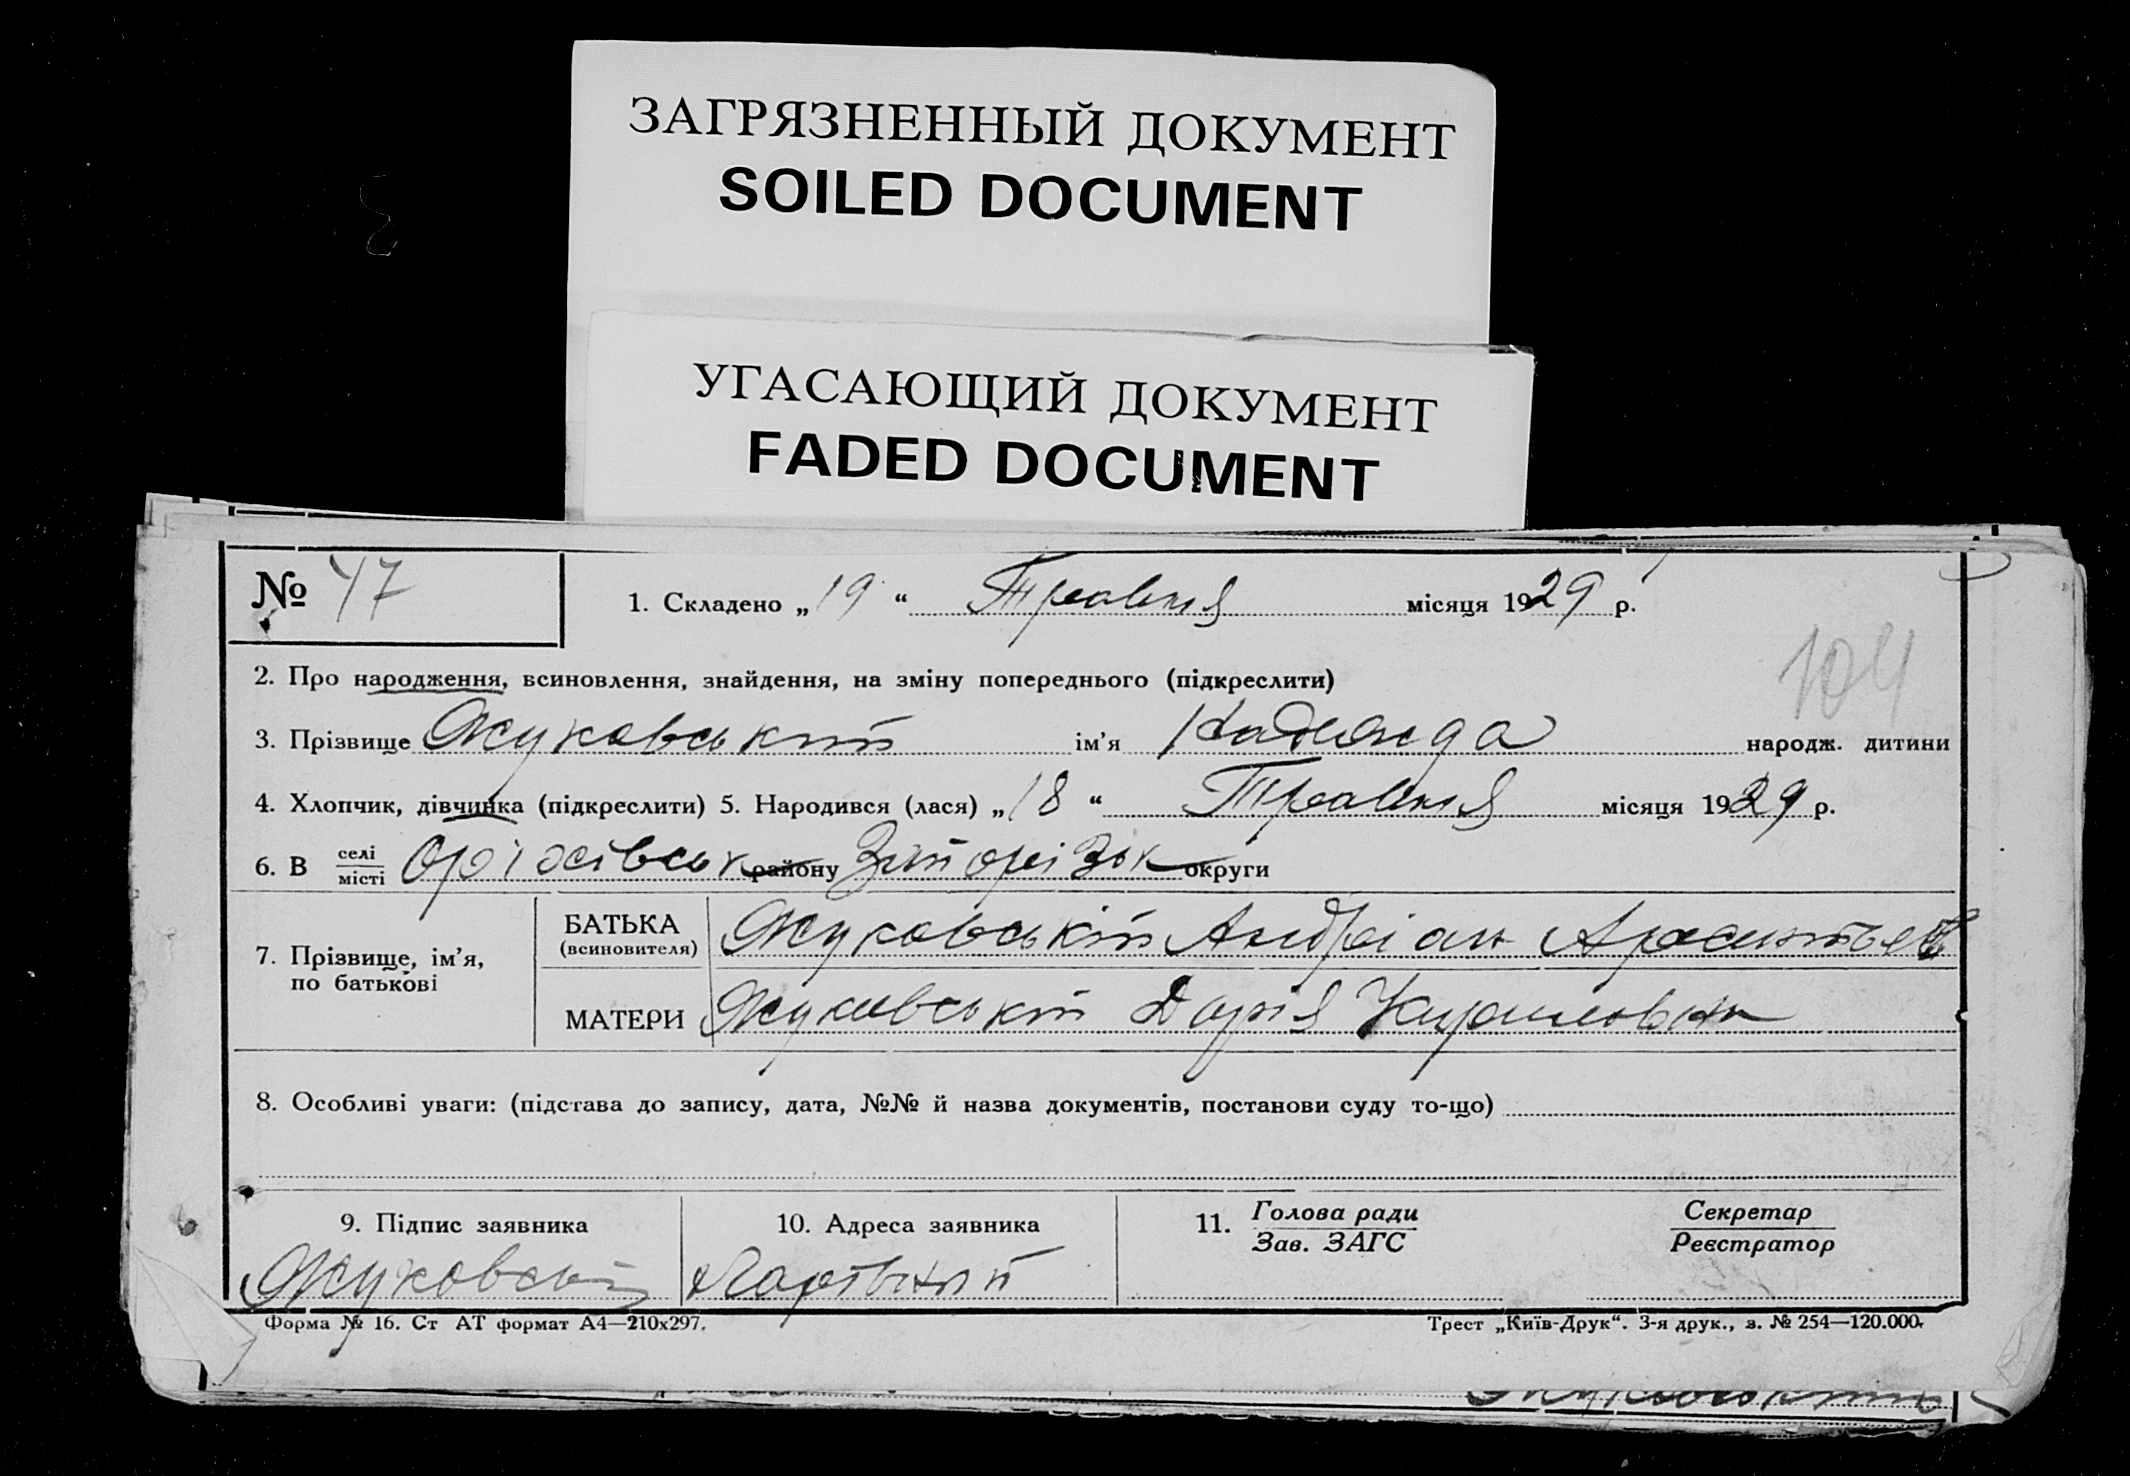 ЗАГРЯЗНЕННЫЙ ДОКУМЕНТ
SOILED DOCUMENT
УГАСАЮЩИЙ ДОКУМЕНТ
FADED DOCUMENT
№ 47
1. Складено „19“ Травня місяця 1929 р.
104
2. Про народження, всиновлення, знайдення, на зміну попереднього (підкреслити)
3. Прізвище Жуковський ім'я Надежда народж. дитини
4. Хлопчик, дівчинка (підкреслити) 5. Народився (лася) „18“ Травня місяця 1929 р.
6. В селі/місті Оріхівськ району Запорізьк округи
7. Прізвище, ім'я, по батькові
БАТЬКА (всиновителя) Жуковській Андріан Арсентьев
МАТЕРИ Жуковській Дарія Кириловна
8. Особливі уваги: (підстава до запису, дата, №№ й назва документів, постанови суду то-що)
9. Підпис заявника
Жуковській
10. Адреса заявника
11. Голова ради/Зав. ЗАГС
Секретар/Реєстратор
Форма № 16. Ст АТ формат А4—210х297.
Трест „Київ-Друк“. 3-я друк., з. № 254—120.000.